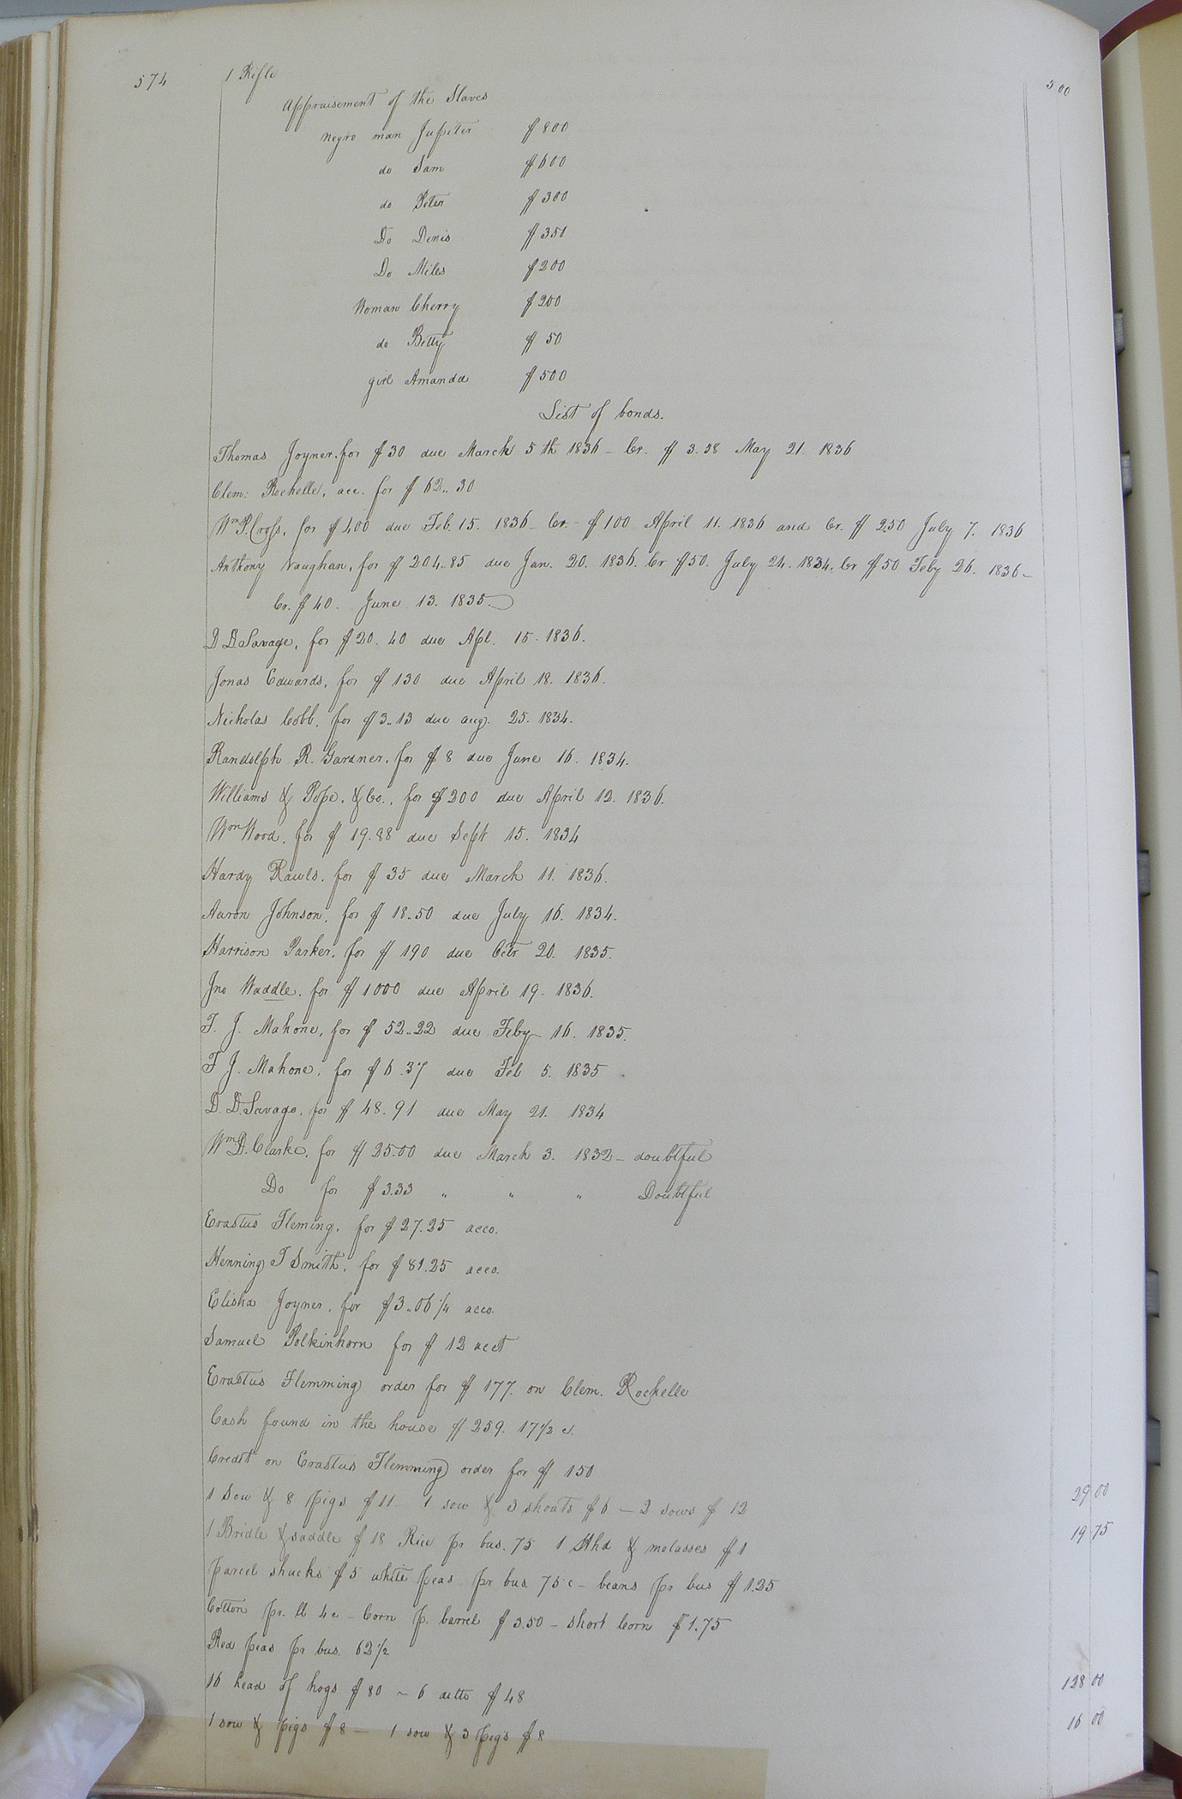 574 1 Rifle 5 00
Appraisement of the Slaves
Negro man Jupiter $800
do Sam $600
do Peter $300
Do Denis $350
Do Miles $200
Woman Cherry $200
do Betty $50
girl Amanda $500
List of bonds.
Thomas Joyner. for $30 due March 5th 1836 – Cr. $3.38 May 21. 1836
Clem: Rochelle, acc. for $62..30
Wm P. Cross, for $400 due Feb. 15. 1836 – Cr. – $100 April 11. 1836 and Cr. $250 July 7. 1836
Anthony Vaughan, for $204..85 due Jan. 20. 1836. Cr $50. July 24. 1834. Cr $50 Feby 26. 1836 –
Cr. $40. June 13. 1835.
D D. Savage, for $20.40 due Apl. 15. 1836.
Jonas Edwards, for $130 due April 18. 1836.
Nicholas Cobb, for $3..13 due aug. 25. 1834.
Randolph R. Gardner, for $8 due June 16. 1834.
Williams & Pope, & Co., for $200 due April 12. 1836.
Wm Wood, for $19.88 due Sept 15. 1834
Hardy Rawls, for $35 due March 11. 1836.
Aaron Johnson, for $18..50 due July 16. 1834.
Harrison Parker, for $190 due Octr 20. 1835.
Jno Waddle, for $1000 due April 19. 1836.
T. J. Mahone, for $52..22 due Feby 16. 1835.
T J. Mahone, for $6.37 due Feb 5. 1835.
D. D. Savage, for $48.91 due May 21. 1834
Wm D. Clarke, for $25.00 due March 3. 1832 – doubtful
Do for $3.33 " " " Doubtful
Erastus Fleming, for $27.25 acco.
Henning T Smith, for $81.25 acco.
Elisha Joyner, for $3..06 1/4 acco.
Samuel Polkinhorn for $12 acct
Erastus Flemming order for $177. on Clem. Rochelle
Cash found in the house $259. 17 1/2 c.
Credit on Erastus Flemming order for $150
1 Sow & 8 pigs $11 – 1 sow & 3 shoats $6 – 2 sows $12 29 00
1 Bridle & saddle $18 Rice pr bus. 75 1 Hhd & molasses $1 19 75
Parcel shucks $5 white peas pr bus 75 c – beans pr bus $1.25
Cotton pr. lb 4 c – Corn p. barrel $3.50 – short Corn $1.75
Red peas pr bus. 62 1/2
16 head of hogs $80 ~ 6 ditto $48 128 00
1 sow & pigs $8 – 1 sow & 3 pigs $8 16 00